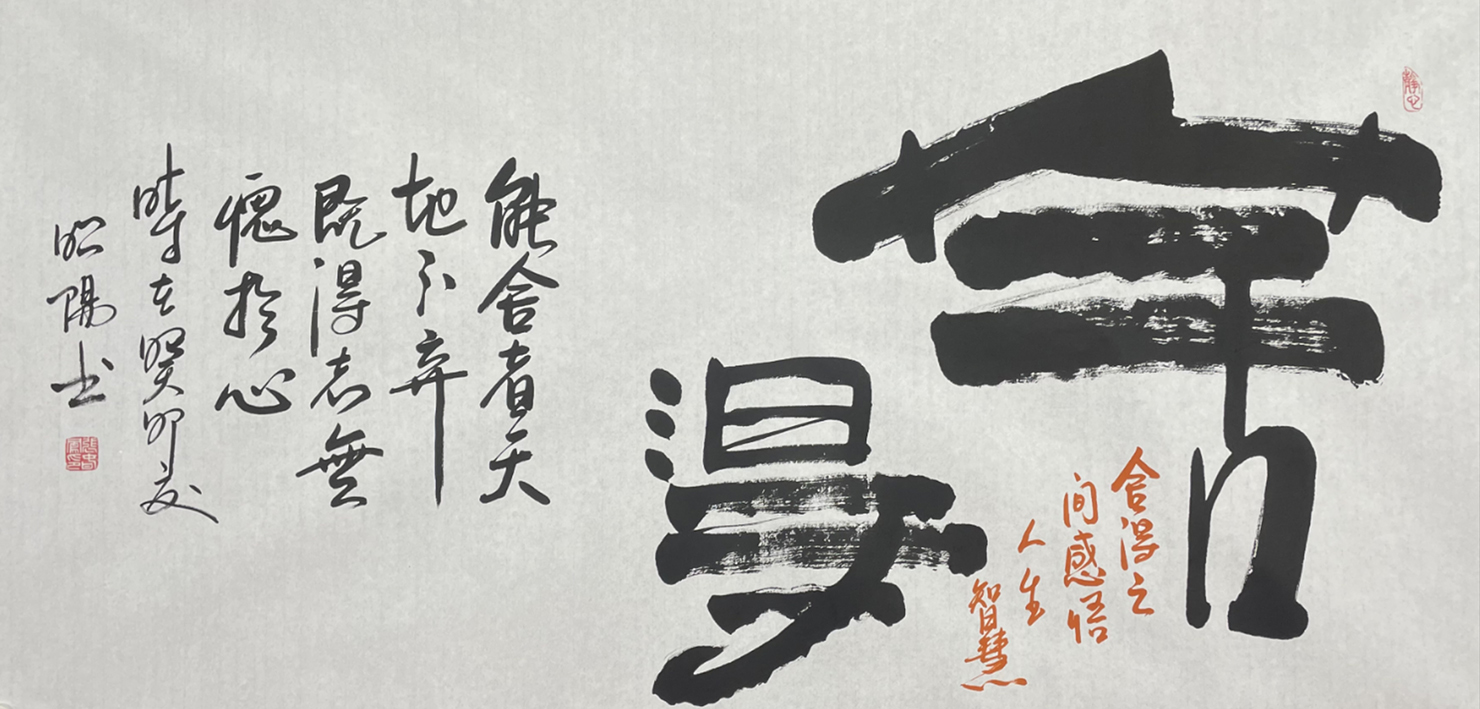 舍
得
舍得之
间感悟
人生
智慧
能舍者天
地不弃
既得志無
愧於心
時在癸卯夏
昭陽书
静心